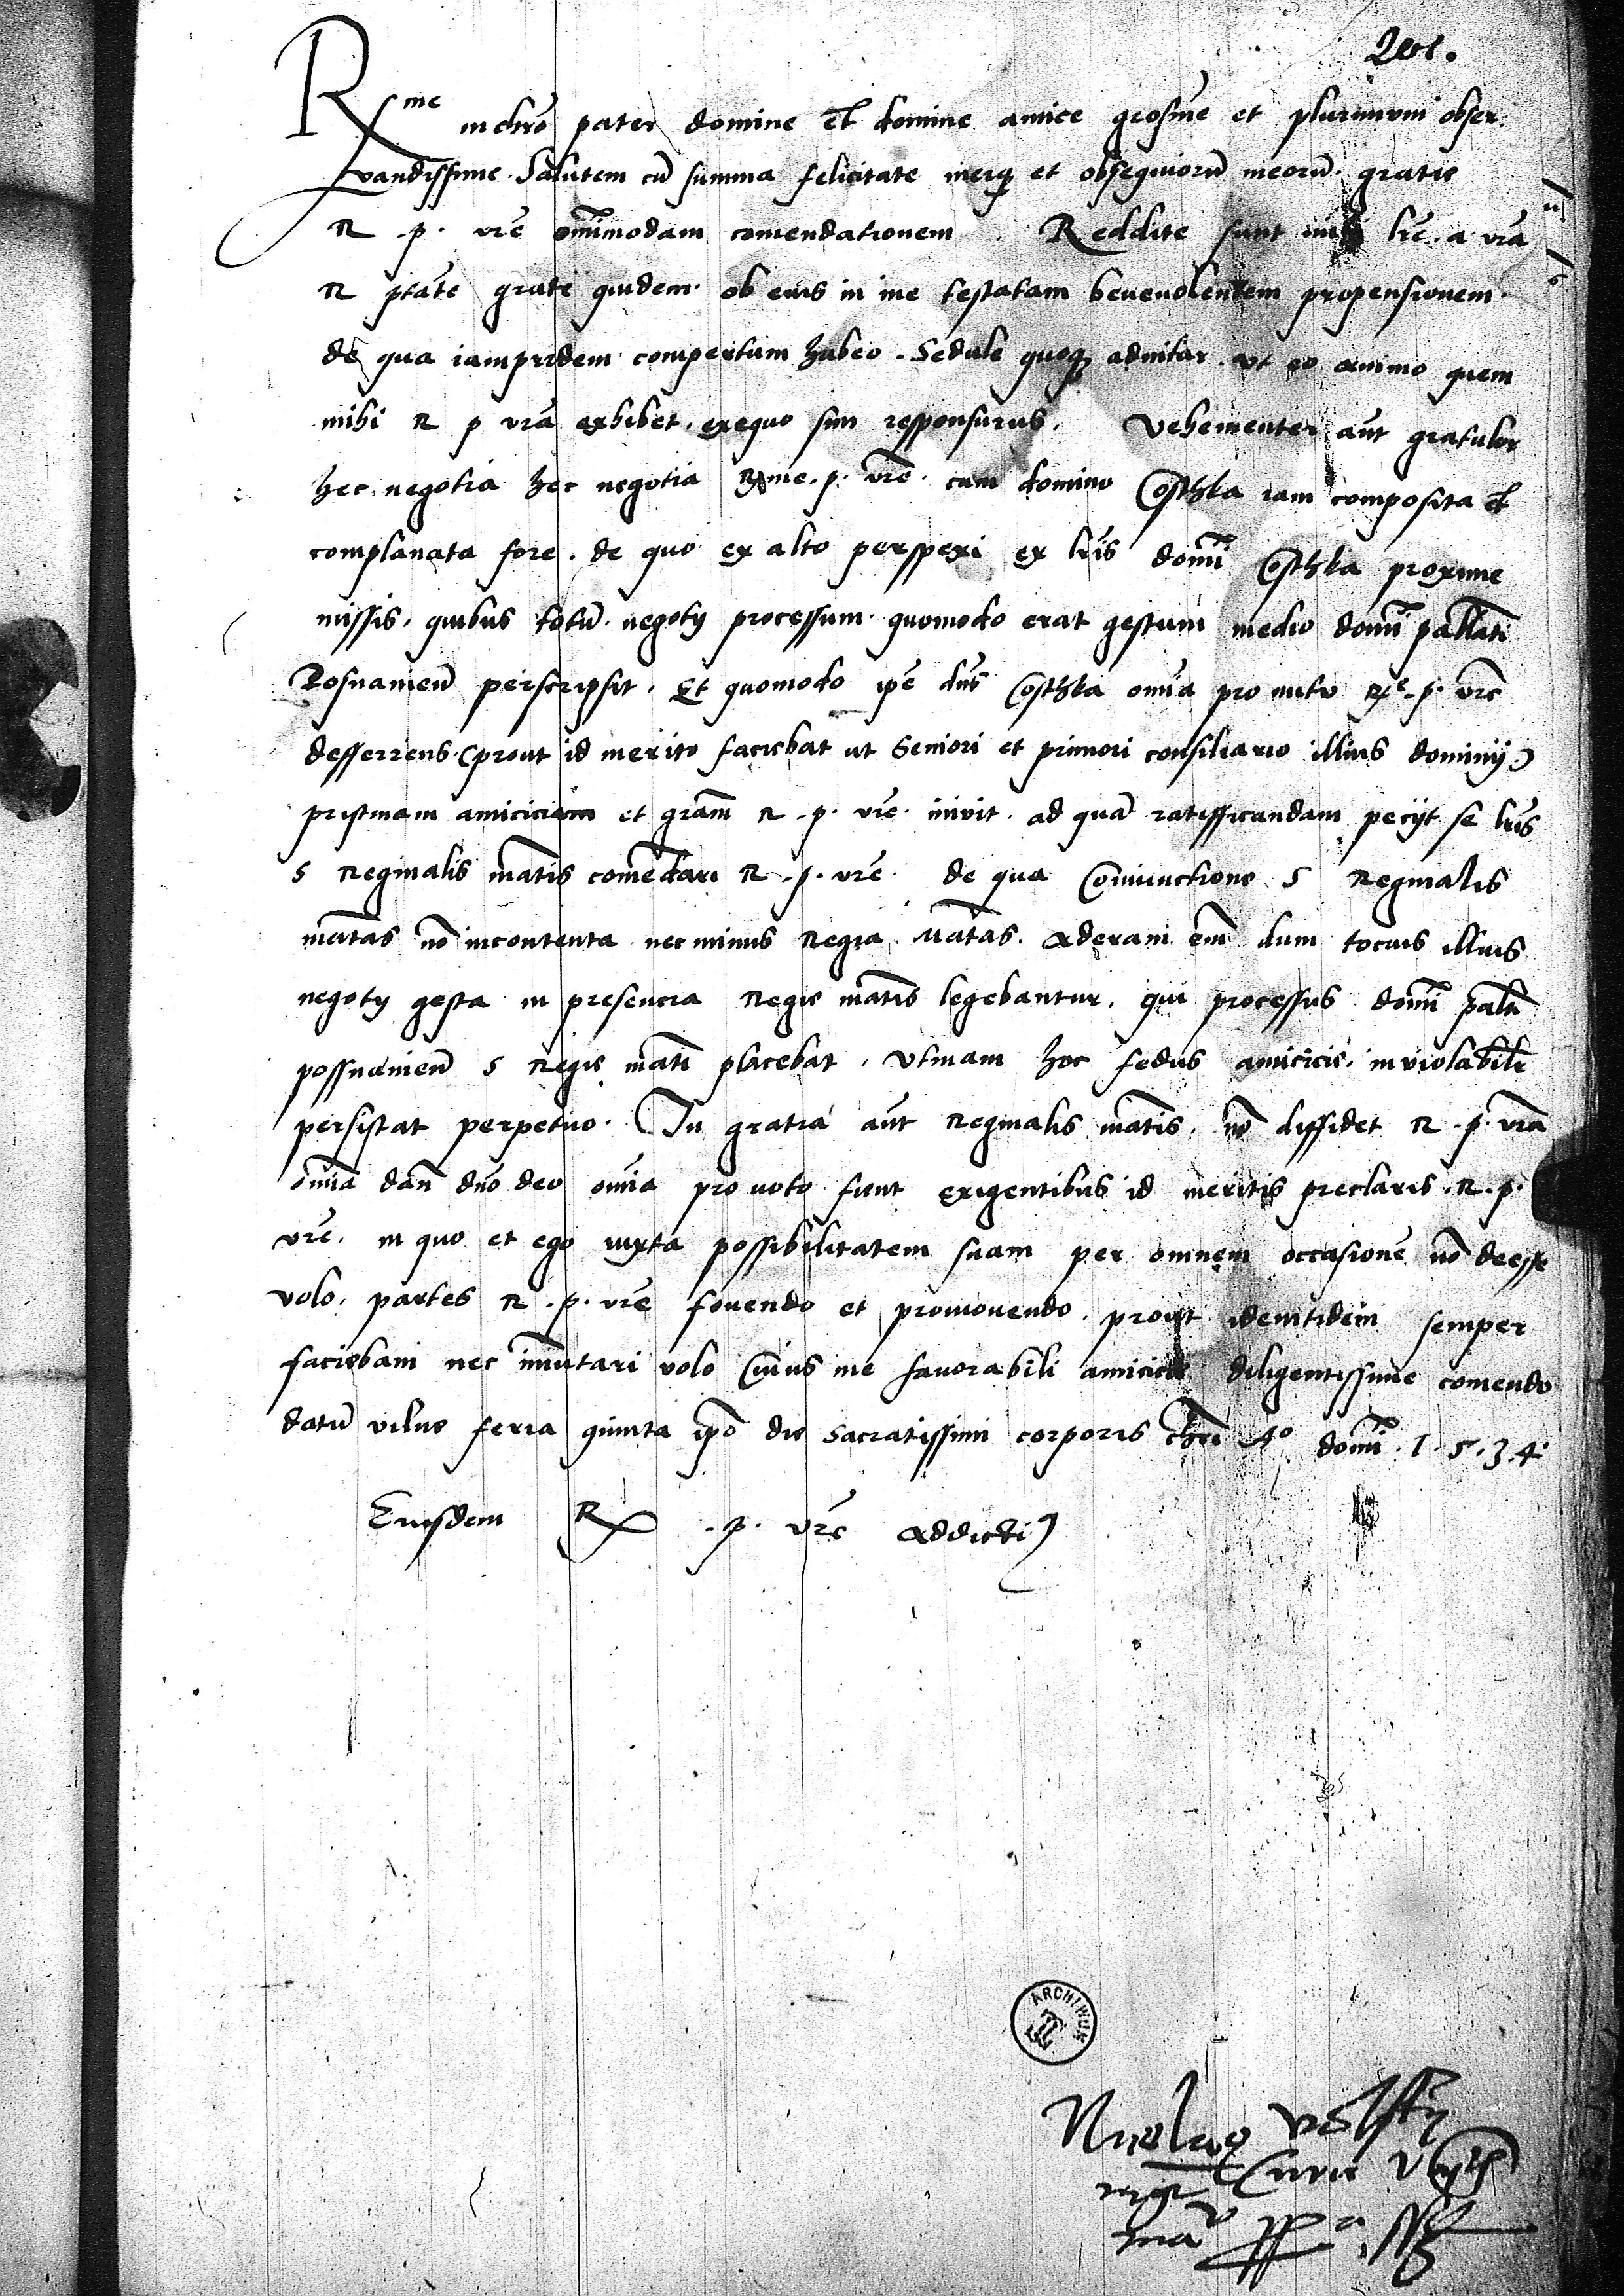 201.
Rme in chro pater domine et domine amice grosme et plurimum obser
vandissime. Salutem cu summa felicitate meq et obsequioru meoru. gratie
R. p. vre omimodam comendationem. Reddite sunt mihi lre. a vra
R ptate grate quidem. ob eius in me testatam benevolentem propensionem.
de qua iampridem compertum habeo. Sedule quoq adnitar. ut eo animo quem
mihi R p vra exhibet. exequo sim responsurus. Vehementer aut gratulor
hec negotia hec negotia Rme. p. vre. cum domino Costhka iam composita et
complanata fore. de quo ex alto perspexi ex lris domi Costhka proxime
missis. quibus totu. negoty processum. quomodo erat gestum medio domi pallati
Posnanien perscripsit. Et quomodo ipe dns Costhka omia pro nutu Re. p. vre
desserrens. (prout id merito faciebat ut Seniori et primori consiliario illius dominij)
pristinam amiciciam et gram R. p. vre. inivit. ad qua ratifficandam pecijt se lris
S Reginalis matis comedari R. p. vre. de qua Coniunctione S Reginalis
matas no incontenta nec minus Regia Matas. aderam em dum tocius illius
negoty gesta in presencia Regie matis legebantur. qui processus domi palti
possnanien S Regie mati placebat. Utinam hoc fedus amicicie. inviolabile
persistat perpetuo. In gratia aut Reginalis matis. no diffidet R. p. vra
omia dan dno deo omia pro voto fient exigentibus id meritis preclaris. R. p.
vre. in quo et ego iuxta possibilitatem suam per omnem occasione no deesse
volo. partes R. p. vre fovendo et promovendo. prout identidem semper
faciebam nec imutari volo Cuius me favorabili amicicie diligentissime comendo
datu vilne feria quinta ipo die Sacratissimi corporis chri Ao domi. 1. 5. 3. 4.
Eiusdem R. p. vre addicti
ARCHIWUM
Nicolaus volsky